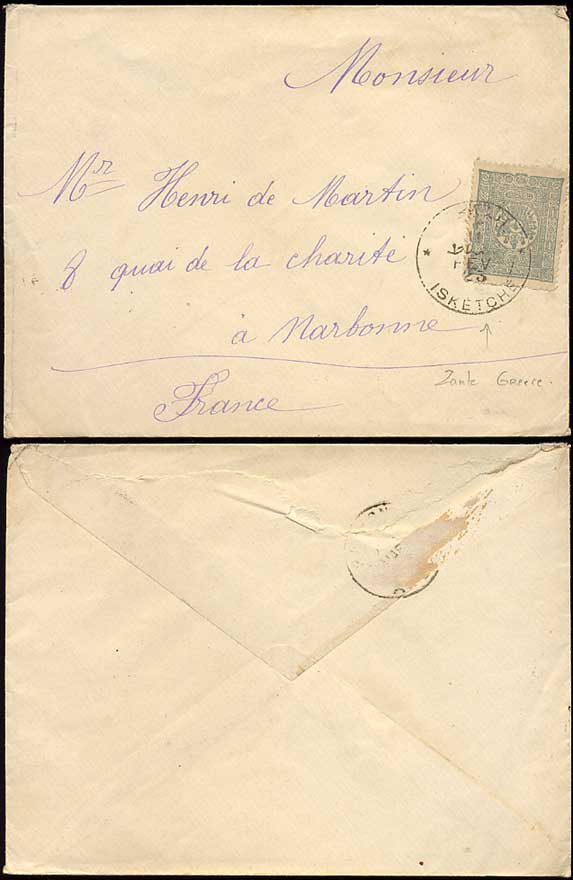 Monsieur
Mr Henri de Martin
8 quai de la charité
à Narbonne
France
FEV
ISKETCHE
Zante Greece.